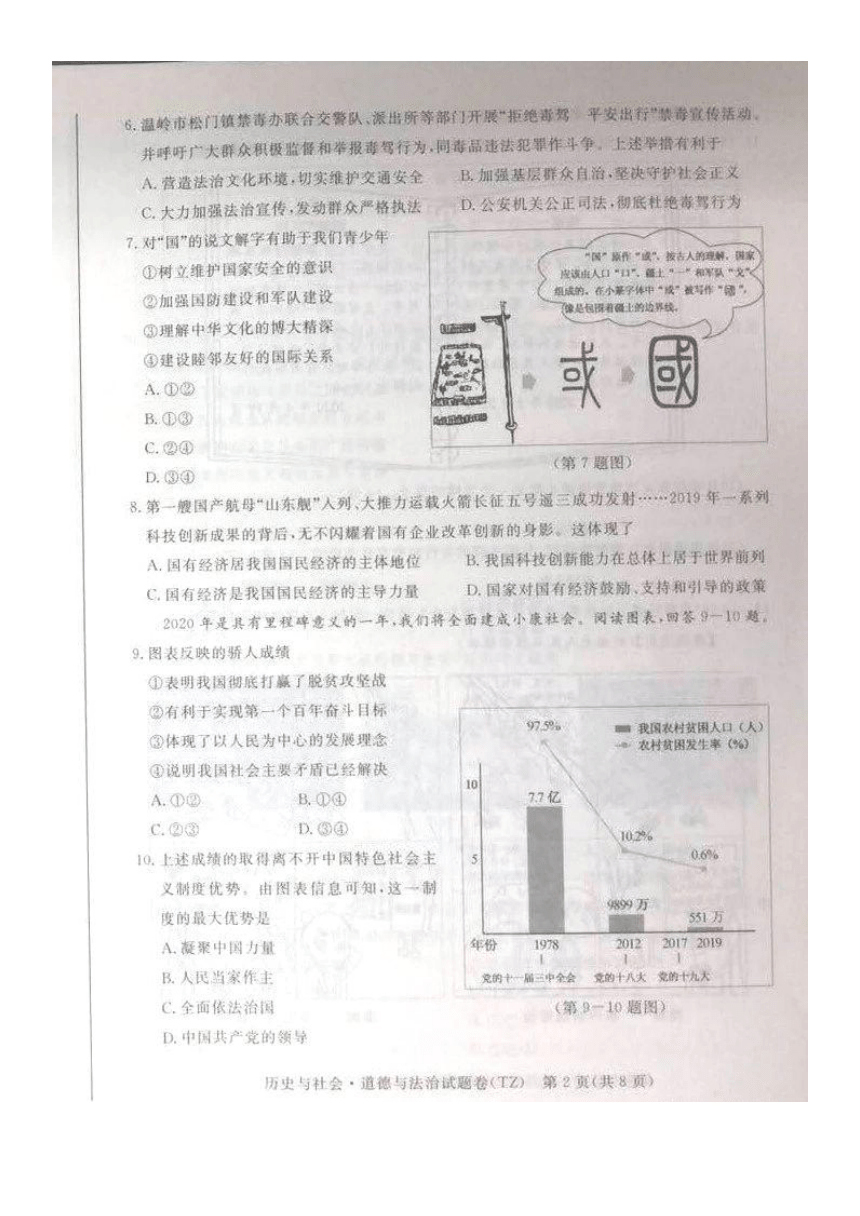 6.温岭市松门镇禁毒办联合交警队、派出所等部门开展“拒绝毒驾 平安出行”禁毒宣传活动。
并呼吁广大群众积极监督和举报毒驾行为,同毒品违法犯罪作斗争。上述举措有利于
A.营造法治文化环境,切实维护交通安全 B.加强基层群众自治,坚决守护社会正义
C.大力加强法治宣传,发动群众严格执法 D.公安机关公正司法,彻底杜绝毒驾行为
7.对“国”的说文解字有助于我们青少年
①树立维护国家安全的意识
②加强国防建设和军队建设
③理解中华文化的博大精深
④建设睦邻友好的国际关系
A.①②
B.①③
C.②④
D.③④
“国”原作“或”,按古人的理解,国家
应该由人口“口”、疆土“一”和军队“戈”
组成的。在小篆字体中“或”被写作“國”,
像是包围着疆土的边界线。
或 國
(第7题图)
8.第一艘国产航母“山东舰”入列、大推力运载火箭长征五号遥三成功发射……2019年一系列
科技创新成果的背后,无不闪耀着国有企业改革创新的身影。这体现了
A.国有经济居我国国民经济的主体地位 B.我国科技创新能力在总体上居于世界前列
C.国有经济是我国国民经济的主导力量 D.国家对国有经济鼓励、支持和引导的政策
2020年是具有里程碑意义的一年,我们将全面建成小康社会。阅读图表,回答9—10题。
9.图表反映的骄人成绩
①表明我国彻底打赢了脱贫攻坚战
②有利于实现第一个百年奋斗目标
③体现了以人民为中心的发展理念
④说明我国社会主要矛盾已经解决
A.①② B.①④
C.②③ D.③④
10.上述成绩的取得离不开中国特色社会主
义制度优势。由图表信息可知,这一制
度的最大优势是
A.凝聚中国力量
B.人民当家作主
C.全面依法治国
D.中国共产党的领导
我国农村贫困人口(人)
农村贫困发生率(%)
97.5%
10.2%
0.6%
10
5
7.7亿
9899万
551万
年份 1978 2012 2017 2019
党的十一届三中全会 党的十八大 党的十九大
(第9—10题图)
历史与社会·道德与法治试题卷(TZ) 第2页(共8页)